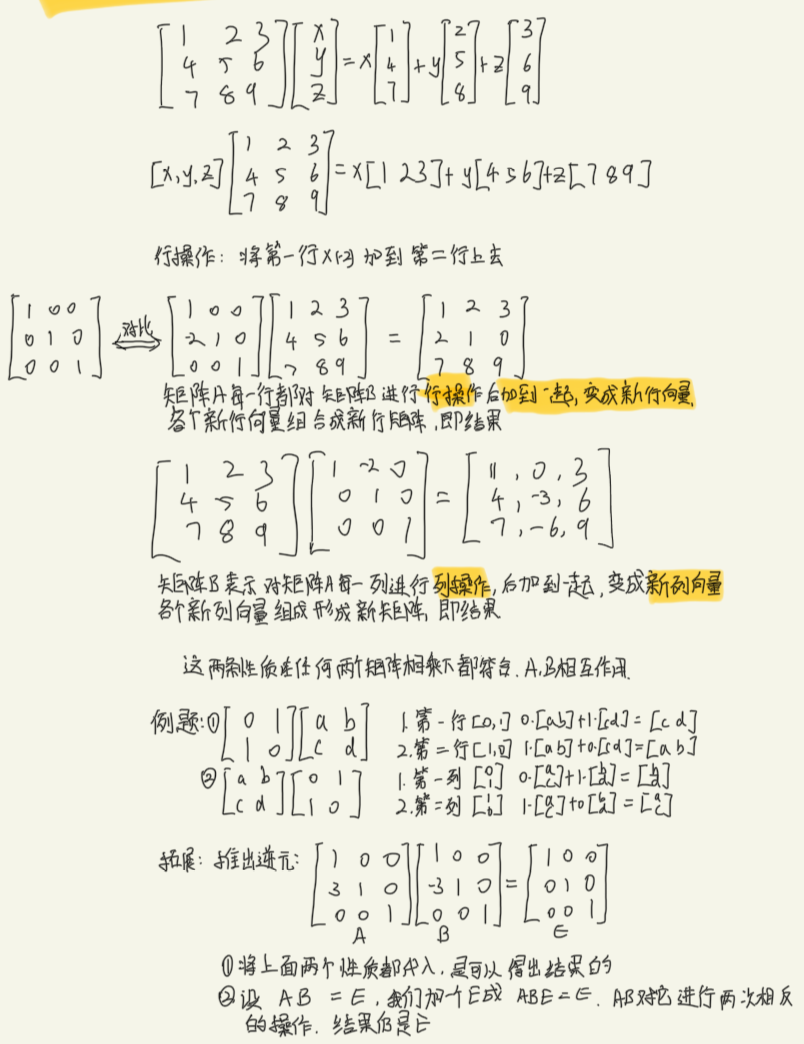 [1 2 3; 4 5 6; 7 8 9][x; y; z] = x[1; 4; 7] + y[2; 5; 8] + z[3; 6; 9]
[x,y,z][1 2 3; 4 5 6; 7 8 9] = x[1 2 3] + y[4 5 6] + z[7 8 9]
行操作: 将第一行×(-2) 加到第二行上去
[1 0 0; 0 1 0; 0 0 1] 对比 [1 0 0; -2 1 0; 0 0 1][1 2 3; 4 5 6; 7 8 9] = [1 2 3; 2 1 0; 7 8 9]
矩阵A每一行都对矩阵B进行行操作后加到一起, 变成新行向量,
各个新行向量组合成新行矩阵, 即结果
[1 2 3; 4 5 6; 7 8 9][1 -2 0; 0 1 0; 0 0 1] = [1, 0, 3; 4, -3, 6; 7, -6, 9]
矩阵B表示对矩阵A每一列进行列操作, 后加到一起, 变成新列向量
各个新列向量组成形成新矩阵, 即结果
这两条性质在任何两个矩阵相乘下都符合. A,B相互作用.
例题: ① [0 1; 1 0][a b; c d] 1. 第一行[0,1] 0·[a b]+1·[c d] = [c d]
2. 第二行[1,0] 1·[a b]+0·[c d] = [a b]
② [a b; c d][0 1; 1 0] 1. 第一列[0; 1] 0·[a; c]+1·[b; d] = [b; d]
2. 第二列[1; 0] 1·[a; c]+0[b; d] = [a; c]
拓展: 推出逆元: [1 0 0; 3 1 0; 0 0 1][1 0 0; -3 1 0; 0 0 1] = [1 0 0; 0 1 0; 0 0 1]
A B E
①将上面两个性质都代入, 是可以得出结果的
②设 AB = E, 我们加个E成 ABE = E. AB对它进行两次相反
的操作. 结果仍是E